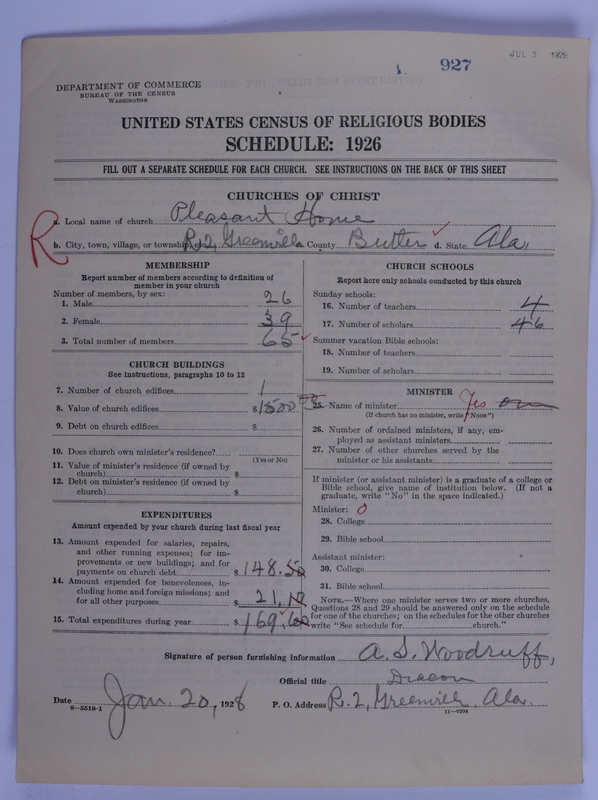 927
JUL 3 1928
DEPARTMENT OF COMMERCE
BUREAU OF THE CENSUS
WASHINGTON
UNITED STATES CENSUS OF RELIGIOUS BODIES
SCHEDULE: 1926
FILL OUT A SEPARATE SCHEDULE FOR EACH CHURCH. SEE INSTRUCTIONS ON THE BACK OF THIS SHEET
CHURCHES OF CHRIST
R
a. Local name of church Pleasant Home
b. City, town, village, or township R. 2, Greenville c. County Butler d. State Ala.
MEMBERSHIP
Report number of members according to definition of
member in your church
Number of members, by sex:
1. Male 26
2. Female 39
3. Total number of members 65
CHURCH BUILDINGS
See instructions, paragraphs 10 to 12
7. Number of church edifices 1
8. Value of church edifices $1500 00
9. Debt on church edifices $
10. Does church own minister's residence?
(Yes or No)
11. Value of minister's residence (if owned by
church) $
12. Debt on minister's residence (if owned by
church) $
EXPENDITURES
Amount expended by your church during last fiscal year
13. Amount expended for salaries, repairs,
and other running expenses; for im-
provements or new buildings; and for
payments on church debt $148.50
14. Amount expended for benevolences, in-
cluding home and foreign missions; and
for all other purposes 21.10
15. Total expenditures during year $169.60
CHURCH SCHOOLS
Report here only schools conducted by this church
Sunday schools:
16. Number of teachers 4
17. Number of scholars 46
Summer vacation Bible schools:
18. Number of teachers
19. Number of scholars
MINISTER
25. Name of minister Yes
(If church has no minister, write "None")
26. Number of ordained ministers, if any, em-
ployed as assistant ministers
27. Number of other churches served by the
minister or his assistants
If minister (or assistant minister) is a graduate of a college or
Bible school, give name of institution below. (If not a
graduate, write "No" in the space indicated.)
Minister: 0
28. College
29. Bible school
Assistant minister:
30. College
31. Bible school
NOTE.—Where one minister serves two or more churches,
Questions 28 and 29 should be answered only on the schedule
for one of the churches; on the schedules for the other churches
write "See schedule for church."
Signature of person furnishing information A. S. Woodruff,
Official title Deacon
Date Jan. 20, 1928 P. O. Address R. 2, Greenville, Ala.
8—5518-1
11—9204